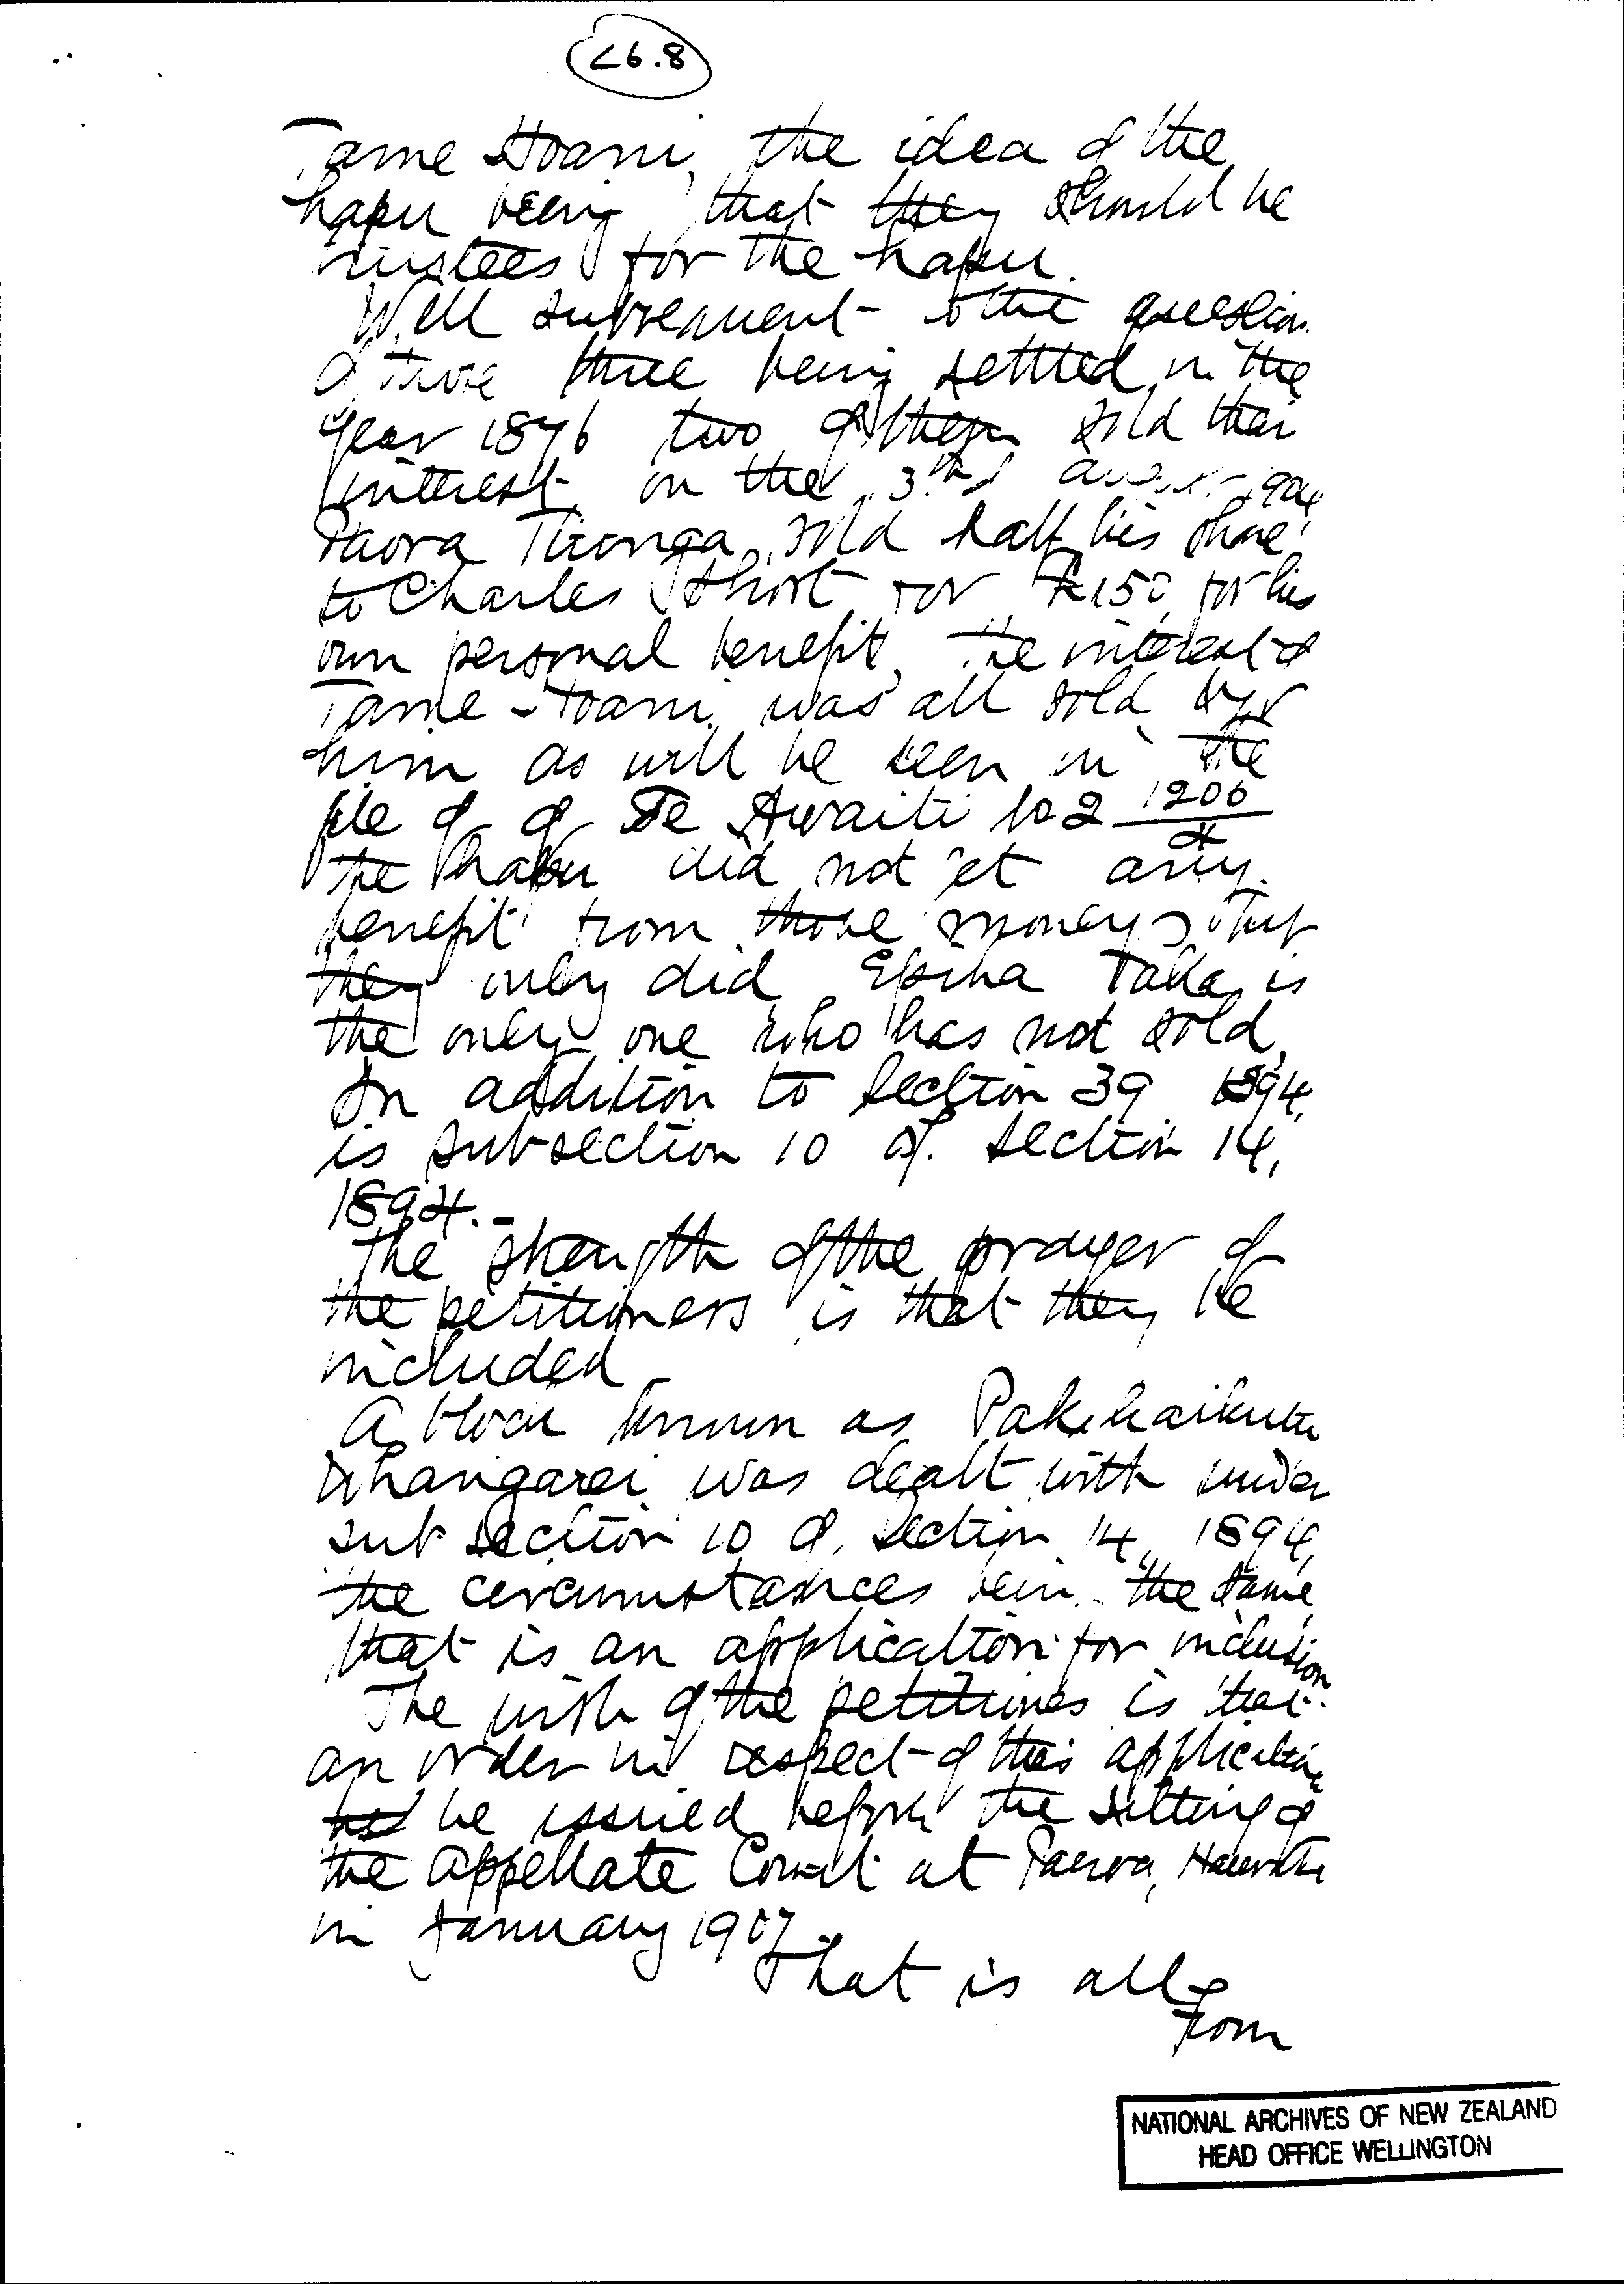 C6.8
Tame Hoani, the idea of the
hapu being that they should be
trustees for the hapu.
Well subsequent to the question
of those three being settled in the
year 1876 two of them sold their
interest, on the 3rd
Paora Tironga sold half his share
to Charles Short for £150 for his
own personal benefit, the interest of
Tame Hoani was all sold by
him as will be seen in the
file of of Te Awaiti No 2 1206
the hapu did not get any
benefit from those moneys,
they only did. Epiha Taha is
the only one who has not sold,
In addition to Section 39 1894,
is subsection 10 of Section 14,
1894.-
The strength of the prayer of
the petitioners is that they be
included
A block known as
Whangarei was dealt with under
sub section 10 of Section 14, 1894,
the circumstances being the same
that is an application for inclusion
The wish of the petitioners is that
an order in respect of this application
be issued before the sitting of
the Appellate Court at Paeroa, Hauraki
in January 1907.
That is all
From
NATIONAL ARCHIVES OF NEW ZEALAND
HEAD OFFICE WELLINGTON